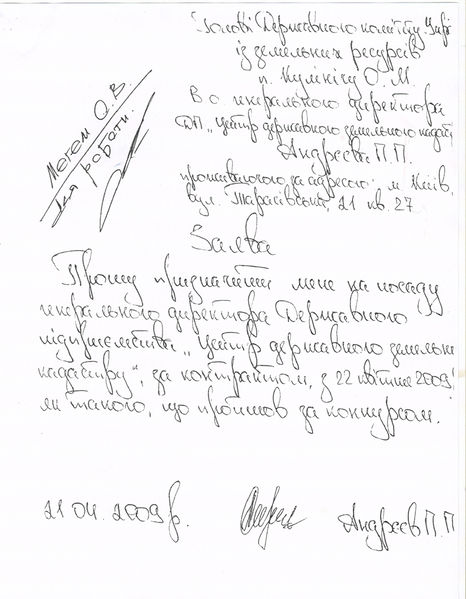 Голові Державного комітету Укр
із земельних ресурсів
п. Кулінічу О. М.
В о. генерального директора
ДП „Центр державного земельного кадаст
Андреєва П. П.
проживаючого за адресою: м. Київ,
вул. Тарасівська, 21 кв. 27
О. В.
для роботи.
Заява
Прошу призначити мене на посаду
генерального директора Державного
підприємства „Центр державного земельн
кадастру“, за контрактом, з 22 квітня 2009
як такого, що пройшов за конкурсом.
21 04. 2009 р.
Андреєв П. П